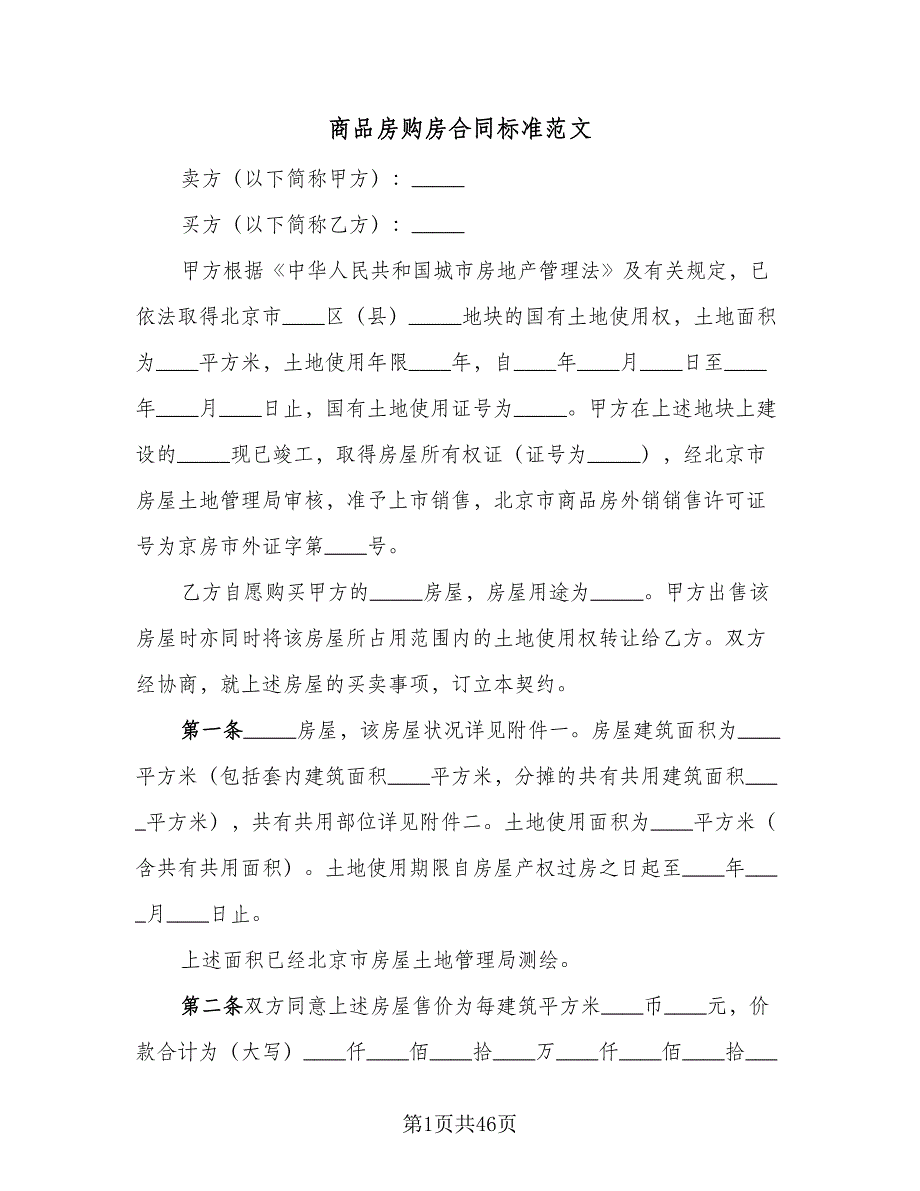 商品房购房合同标准范文
卖方（以下简称甲方）：_____
买方（以下简称乙方）：_____
甲方根据《中华人民共和国城市房地产管理法》及有关规定，已
依法取得北京市____区（县）_____地块的国有土地使用权，土地面积
为____平方米，土地使用年限____年，自____年____月____日至____
年____月____日止，国有土地使用证号为_____。甲方在上述地块上建
设的_____现已竣工，取得房屋所有权证（证号为_____），经北京市
房屋土地管理局审核，准予上市销售，北京市商品房外销销售许可证
号为京房市外证字第____号。
乙方自愿购买甲方的_____房屋，房屋用途为_____。甲方出售该
房屋时亦同时将该房屋所占用范围内的土地使用权转让给乙方。双方
经协商，就上述房屋的买卖事项，订立本契约。
第一条_____房屋，该房屋状况详见附件一。房屋建筑面积为____
平方米（包括套内建筑面积____平方米，分摊的共有共用建筑面积___
_平方米），共有共用部位详见附件二。土地使用面积为____平方米（
含共有共用面积）。土地使用期限自房屋产权过房之日起至____年___
_月____日止。
上述面积已经北京市房屋土地管理局测绘。
第二条双方同意上述房屋售价为每建筑平方米____币____元，价
款合计为（大写）____仟____佰____拾____万____仟____佰____拾___
第1页共46页